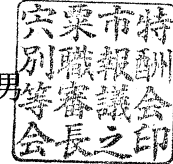 男
宍粟市特
別職報酬
等審議会
会長之印